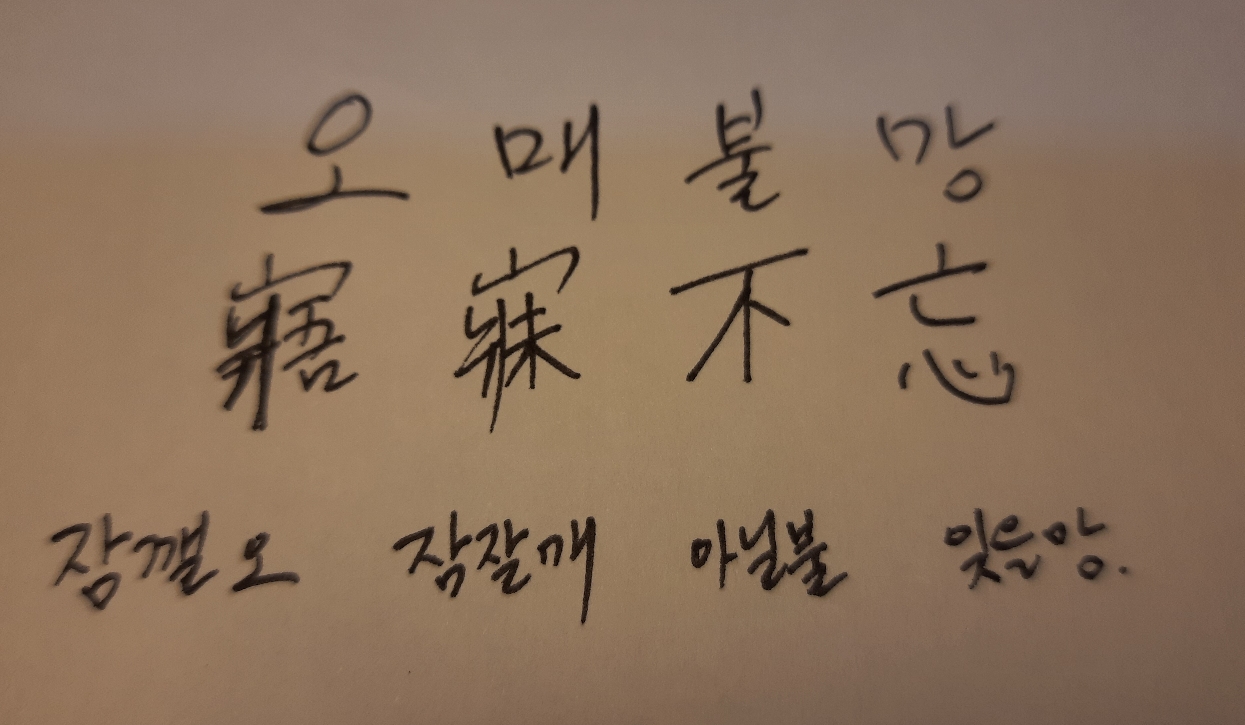 오 매 불 망
寤 寐 不 忘
잠깰 오 잠잘 매 아닐 불 잊을 망.